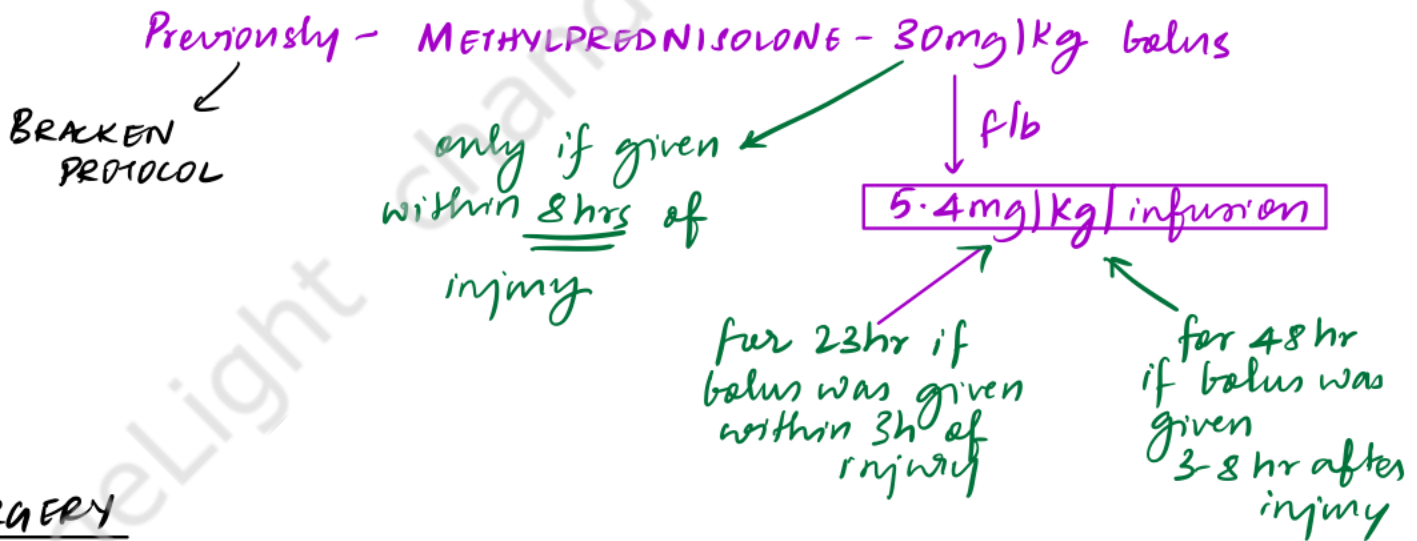 Previously - METHYLPREDNISOLONE - 30mg/kg bolus
BRACKEN
PROTOCOL
only if given
within 8hrs of
injury
f/b
5.4mg/kg/infusion
for 23hr if
bolus was given
within 3h of
injury
for 48hr
if bolus was
given
3-8 hr after
injury
RGERY
neLight
chand